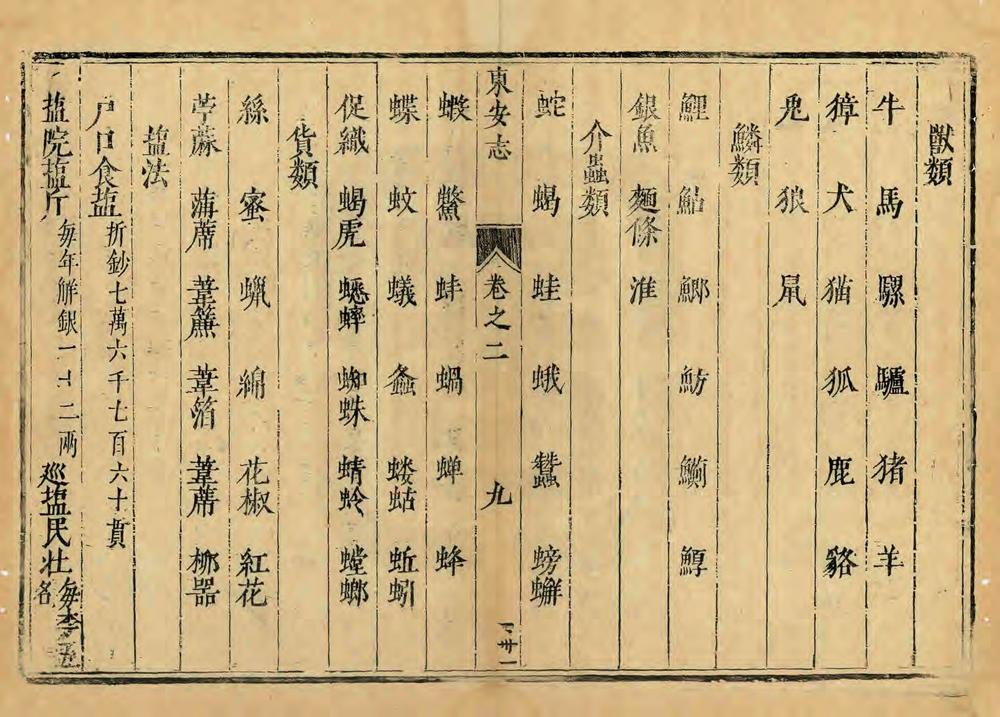 獸類
牛 馬 騾 驢 猪 羊
獐 犬 猫 狐 鹿 貉
兎 狼 鼠
鱗類
鯉 鮎 鯽 魴 鱖 鱘
銀魚 麵條 淮
介蟲類
蛇 蝎 蛙 蛾 蠶 螃蠏
東安志 卷之二 九
蝦 鱉 蚌 蝸 蟬 蜂
蝶 蚊 蟻 螽 螻蛄 蚯蚓
促織 蝎虎 蟋蟀 蜘蛛 蜻蛉 螳螂
貨類
絲 蜜 蝋 綿 花椒 紅花
苧蔴 蒲蓆 葦簾 葦箔 葦蓆 柳器
塩法
户口食塩折鈔七萬六千七百六十貫
塩院塩斤每年解銀一十二兩 廵塩民壮名每季五